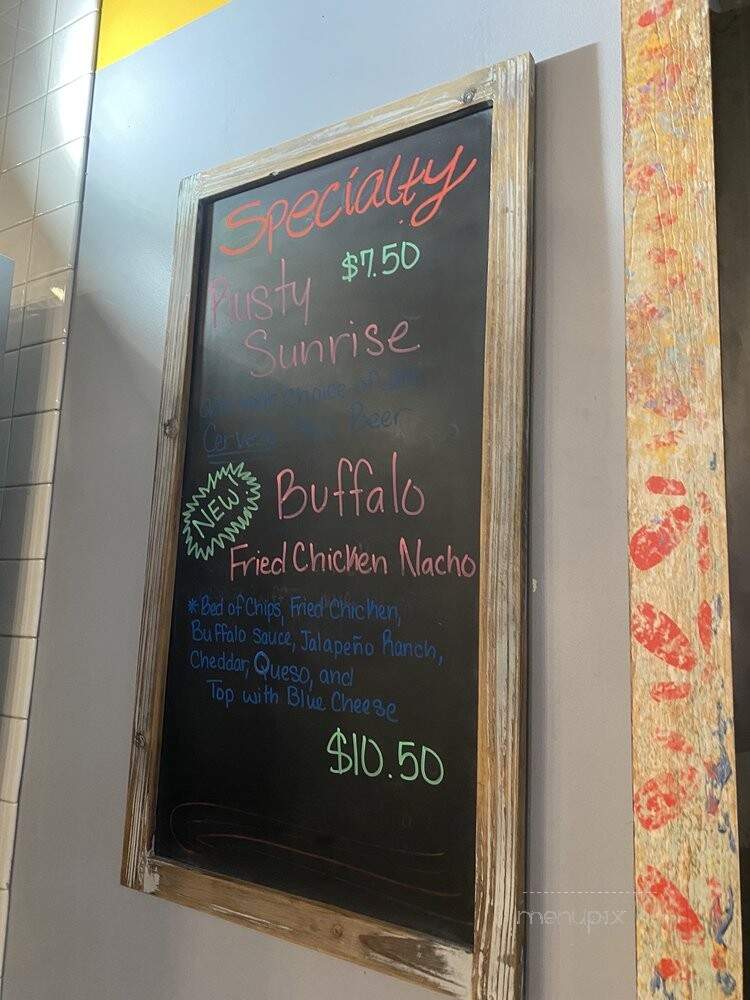 Specialty
$7.50
Rusty
Sunrise
choice of
Beer
NEW!
Buffalo
Fried Chicken Nacho
*Bed of Chips, Fried Chicken,
Buffalo Sauce, Jalapeño Ranch,
Cheddar, Queso, and
Top with Blue Cheese
$10.50
menupix